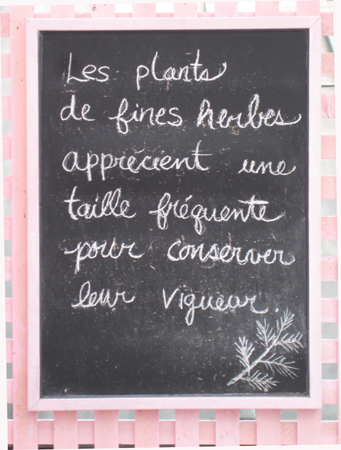 Les plants
de fines herbes
apprécient une
taille fréquente
pour conserver
leur vigueur.